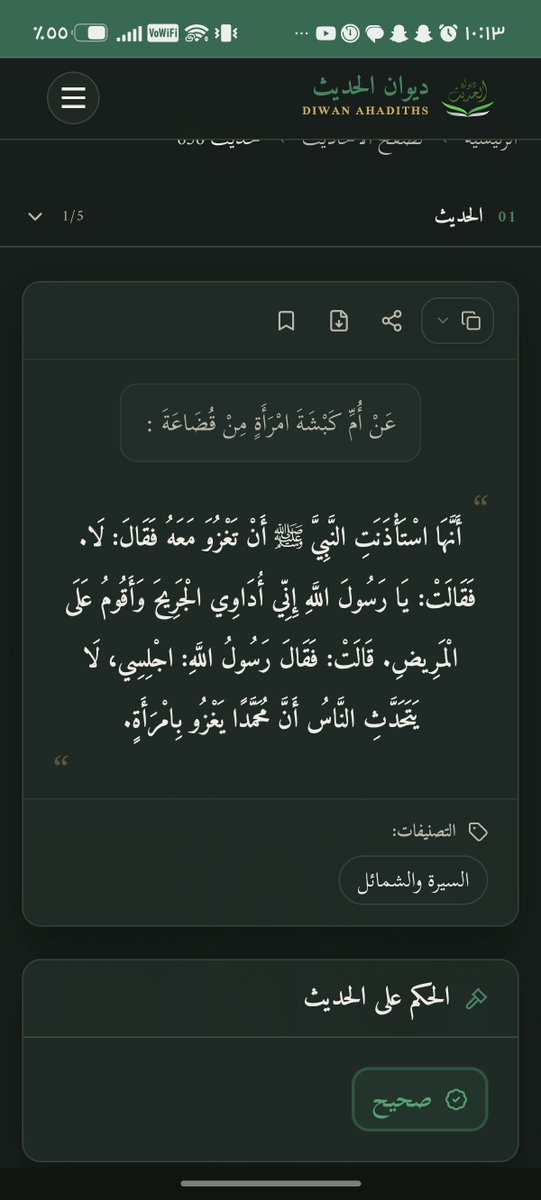 ١٠:١٣
VoWiFi
٪٥٥
ديوان الحديث
DIWAN AHADITHS
الرئيسية تصفح الأحاديث حديث 656
01 الحديث
1/5
عَنْ أُمِّ كَبْشَةَ امْرَأَةٍ مِنْ قُضَاعَةَ :
أَنَّهَا اسْتَأْذَنَتِ النَّبِيَّ ﷺ أَنْ تَغْزُوَ مَعَهُ فَقَالَ: لَا.
فَقَالَتْ: يَا رَسُولَ اللَّهِ إِنِّي أُدَاوِي الْجَرِيحَ وَأَقُومُ عَلَى
الْمَرِيضِ. قَالَتْ: فَقَالَ رَسُولُ اللَّهِ: اجْلِسِي، لَا
يَتَحَدَّثِ النَّاسُ أَنَّ مُحَمَّدًا يَغْزُو بِامْرَأَةٍ.
التصنيفات:
السيرة والشمائل
الحكم على الحديث
صحيح